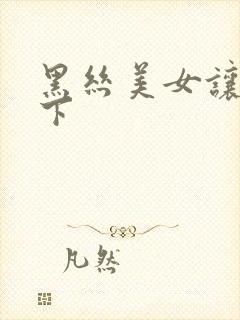 黑丝美女讓
下
凡然